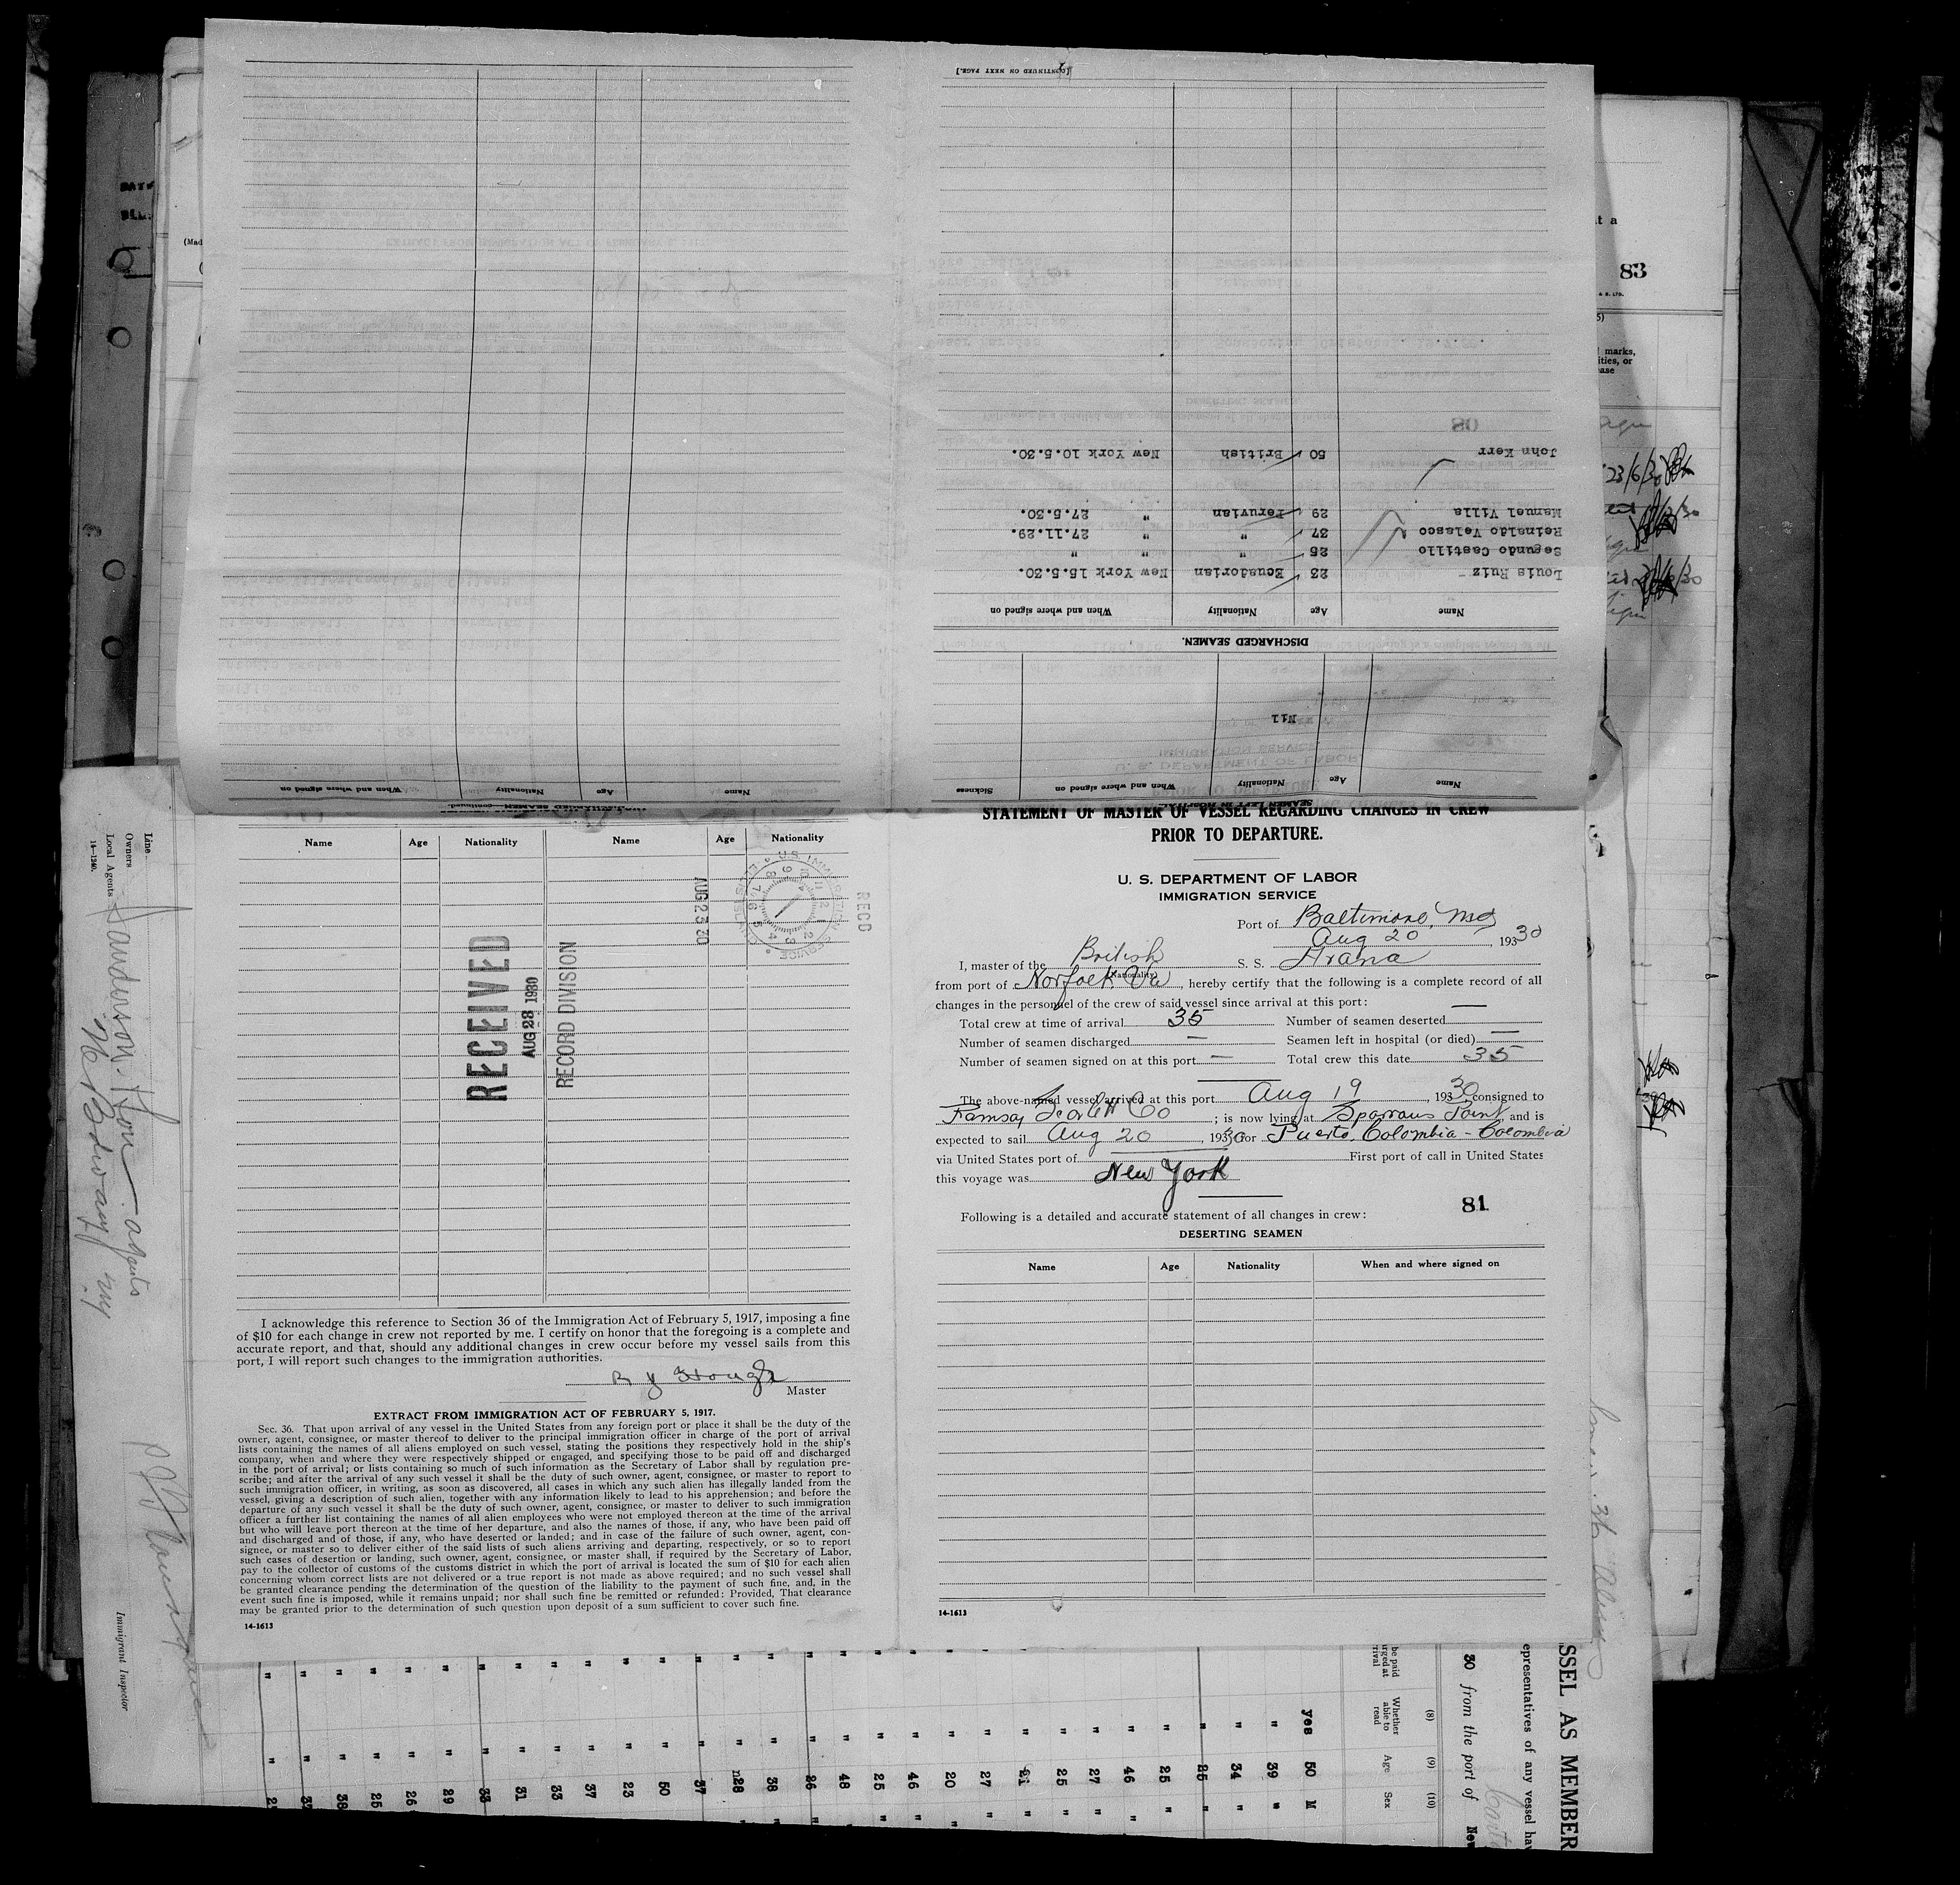 [CONTINUED ON NEXT PAGE.]
John Kerr 50 British New York 10.5.30.
Manuel Villa 29 Peruvian " 27.5.30.
Reinaldo Velasco 37 " " 27.11.29.
Segundo Castillo 25 " " "
Louis Ruiz 23 Ecuadorian New York 15.5.30.
Name Age Nationality When and where signed on
DISCHARGED SEAMEN.
Nil
Name Age Nationality When and where signed on Sickness
SEAMEN LEFT IN HOSPITAL
Name Age Nationality When and where signed on
83
marks,
STATEMENT OF MASTER OF VESSEL REGARDING CHANGES IN CREW
PRIOR TO DEPARTURE.
U. S. DEPARTMENT OF LABOR
IMMIGRATION SERVICE
Port of Baltimore, Md
Aug 20, 1930
I, master of the British S. S. Arana
(Nationality)
from port of Norfolk Va, hereby certify that the following is a complete record of all
changes in the personnel of the crew of said vessel since arrival at this port:
Total crew at time of arrival 35 Number of seamen deserted —
Number of seamen discharged — Seamen left in hospital (or died) —
Number of seamen signed on at this port — Total crew this date 35
The above-named vessel arrived at this port Aug 19, 1930, consigned to
Ramsay Scarlett Co; is now lying at Sparrows Point and is
expected to sail Aug 20, 1930 for Puerto Colombia - Colombia
via United States port of First port of call in United States
this voyage was New York
81
Following is a detailed and accurate statement of all changes in crew:
DESERTING SEAMEN
Name Age Nationality When and where signed on
14-1613
Name Age Nationality Name Age Nationality
RECEIVED
AUG 28 1930
RECORD DIVISION
AUG 23 30
RECD
I acknowledge this reference to Section 36 of the Immigration Act of February 5, 1917, imposing a fine
of $10 for each change in crew not reported by me. I certify on honor that the foregoing is a complete and
accurate report, and that, should any additional changes in crew occur before my vessel sails from this
port, I will report such changes to the immigration authorities.
Master
EXTRACT FROM IMMIGRATION ACT OF FEBRUARY 5, 1917.
Sec. 36. That upon arrival of any vessel in the United States from any foreign port or place it shall be the duty of the
owner, agent, consignee, or master thereof to deliver to the principal immigration officer in charge of the port of arrival
lists containing the names of all aliens employed on such vessel, stating the positions they respectively hold in the ship's
company, when and where they were respectively shipped or engaged, and specifying those to be paid off and discharged
in the port of arrival; or lists containing so much of such information as the Secretary of Labor shall by regulation pre-
scribe; and after the arrival of any such vessel it shall be the duty of such owner, agent, consignee, or master to report to
such immigration officer, in writing, as soon as discovered, all cases in which any such alien has illegally landed from the
vessel, giving a description of such alien, together with any information likely to lead to his apprehension; and before the
departure of any such vessel it shall be the duty of such owner, agent, consignee, or master to deliver to such immigration
officer a further list containing the names of all alien employees who were not employed thereon at the time of the arrival
but who will leave port thereon at the time of her departure, and also the names of those, if any, who have been paid off
and discharged and of those, if any, who have deserted or landed; and in case of the failure of such owner, agent, con-
signee, or master so to deliver either of the said lists of such aliens arriving and departing, respectively, or so to report
such cases of desertion or landing, such owner, agent, consignee, or master shall, if required by the Secretary of Labor,
pay to the collector of customs of the customs district in which the port of arrival is located the sum of $10 for each alien
concerning whom correct lists are not delivered or a true report is not made as above required; and no such vessel shall
be granted clearance pending the determination of the question of the liability to the payment of such fine, and, in the
event such fine is imposed, while it remains unpaid; nor shall such fine be remitted or refunded: Provided, That clearance
may be granted prior to the determination of such question upon deposit of a sum sufficient to cover such fine.
14-1613
Line
Owners
Local Agents
14-1240.
Immigrant Inspector
SSEL AS MEMBER
epresentatives of any vessel hav
30 from the port of New
(8) (9) (10)
Whether able to read Age Sex
yes 50 M